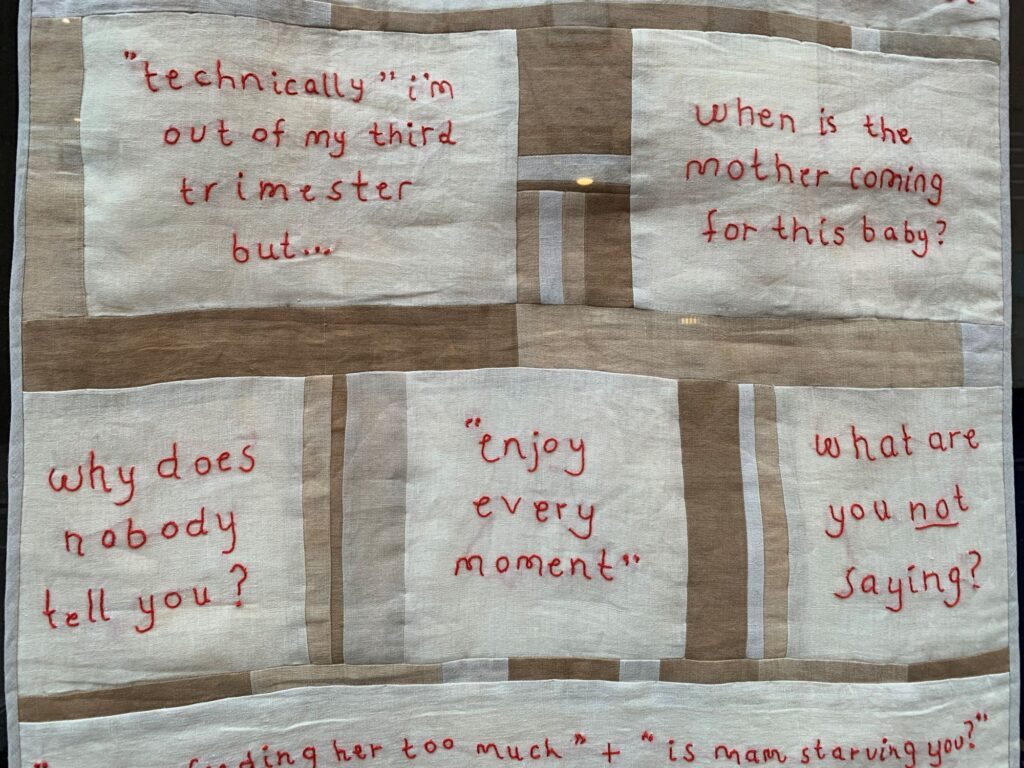 "technically" i'm
out of my third
trimester
but...
when is the
mother coming
for this baby?
why does
nobody
tell you?
"enjoy
every
moment"
what are
you not
saying?
her too much" + "is mam starving you?"